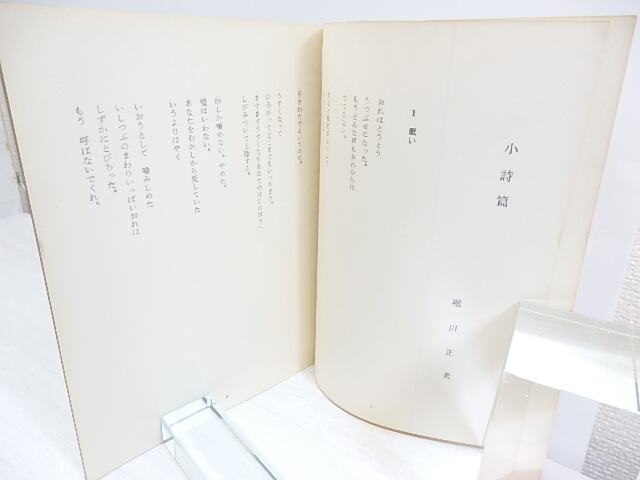 小詩篇
堀川正美
1 眠い
おれはとうとう
うつぶせになった。
もうどんな何もおれからは
でてこない。
引きわたすというのだ。
うすくなって
ひろがってどこまでもいっちまう。
ますますうすくなりあなたのはじにはう、
しがみついて上陸する。
砂しか噛めない。やめた。
嘘はいわない。
あなたをむかしから愛していた
いうよりはやく
いおうとして 噛みしめた
いしつぶのまわりいっぱいおれは
しずかにとびちった。
もう 呼ばないでくれ。